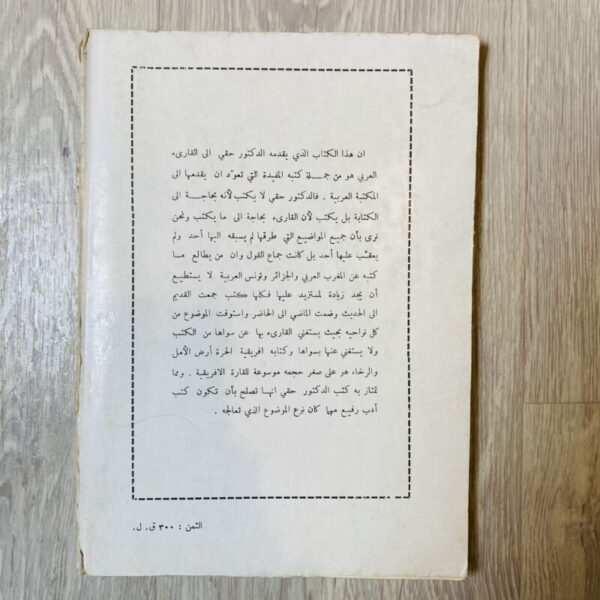 ان هذا الكتاب الذي يقدمه الدكتور حقي الى القارىء
العربي هو من جملة كتبه المفيدة التي تعوّد ان يقدمها الى
المكتبة العربية . فالدكتور حقي لا يكتب لأنه بحاجة الى
الكتابة بل يكتب لأن القارىء بحاجة الى ما يكتب ونحن
نرى بأن جميع المواضيع التي طرقها لم يسبقه اليها أحد ولم
يعقّب عليها أحد بل كانت جماع القول وان من يطالع هـا
كتبه عن المغرب العربي والجزائر وتونس العربية لا يستطيع
أن يجد زيادة لمستزيد عليها فكلها كتب جمعت القديم
الى الحديث وضمت الماضي الى الحاضر واستوفت الموضوع من
كل نواحيه بحيث يستغني القارىء بها عن سواها من الكتب
ولا يستغني عنها بسواها وكتابه افريقية الحرة أرض الأمل
والرخاء هو على صغر حجمه موسوعة للقارة الافريقية . ومما
تمتاز به كتب الدكتور حقي انها تصلح بأن تكون كتب
أدب رفيع مهما كان نوع الموضوع الذي تعالجه .
الثمن : ٣٠٠ ق. ل.